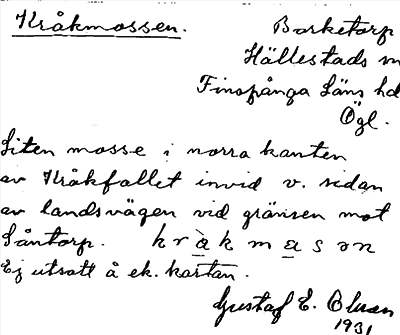 Kråkmossen.
Borketorp
Hällestads
Finspånga Läns hd
Ögl.
Liten mosse i norra kanten
av Kråkfallet invid v. sidan
av landsvägen vid gränsen mot
Låntorp. kràkmasɔn
Ej utsatt å ek. kartan.
Gustaf E. Olson
1931